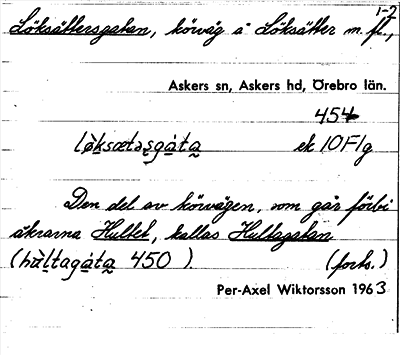 1-2
Löksättersgatan, körväg å Löksätter m. fl.,
Askers sn, Askers hd, Örebro län.
454
ek 10F1g
Den del av körvägen, som går förbi
åkrarna Hultet, kallas Hultagatan
450 ). (forts.)
Per-Axel Wiktorsson 1963